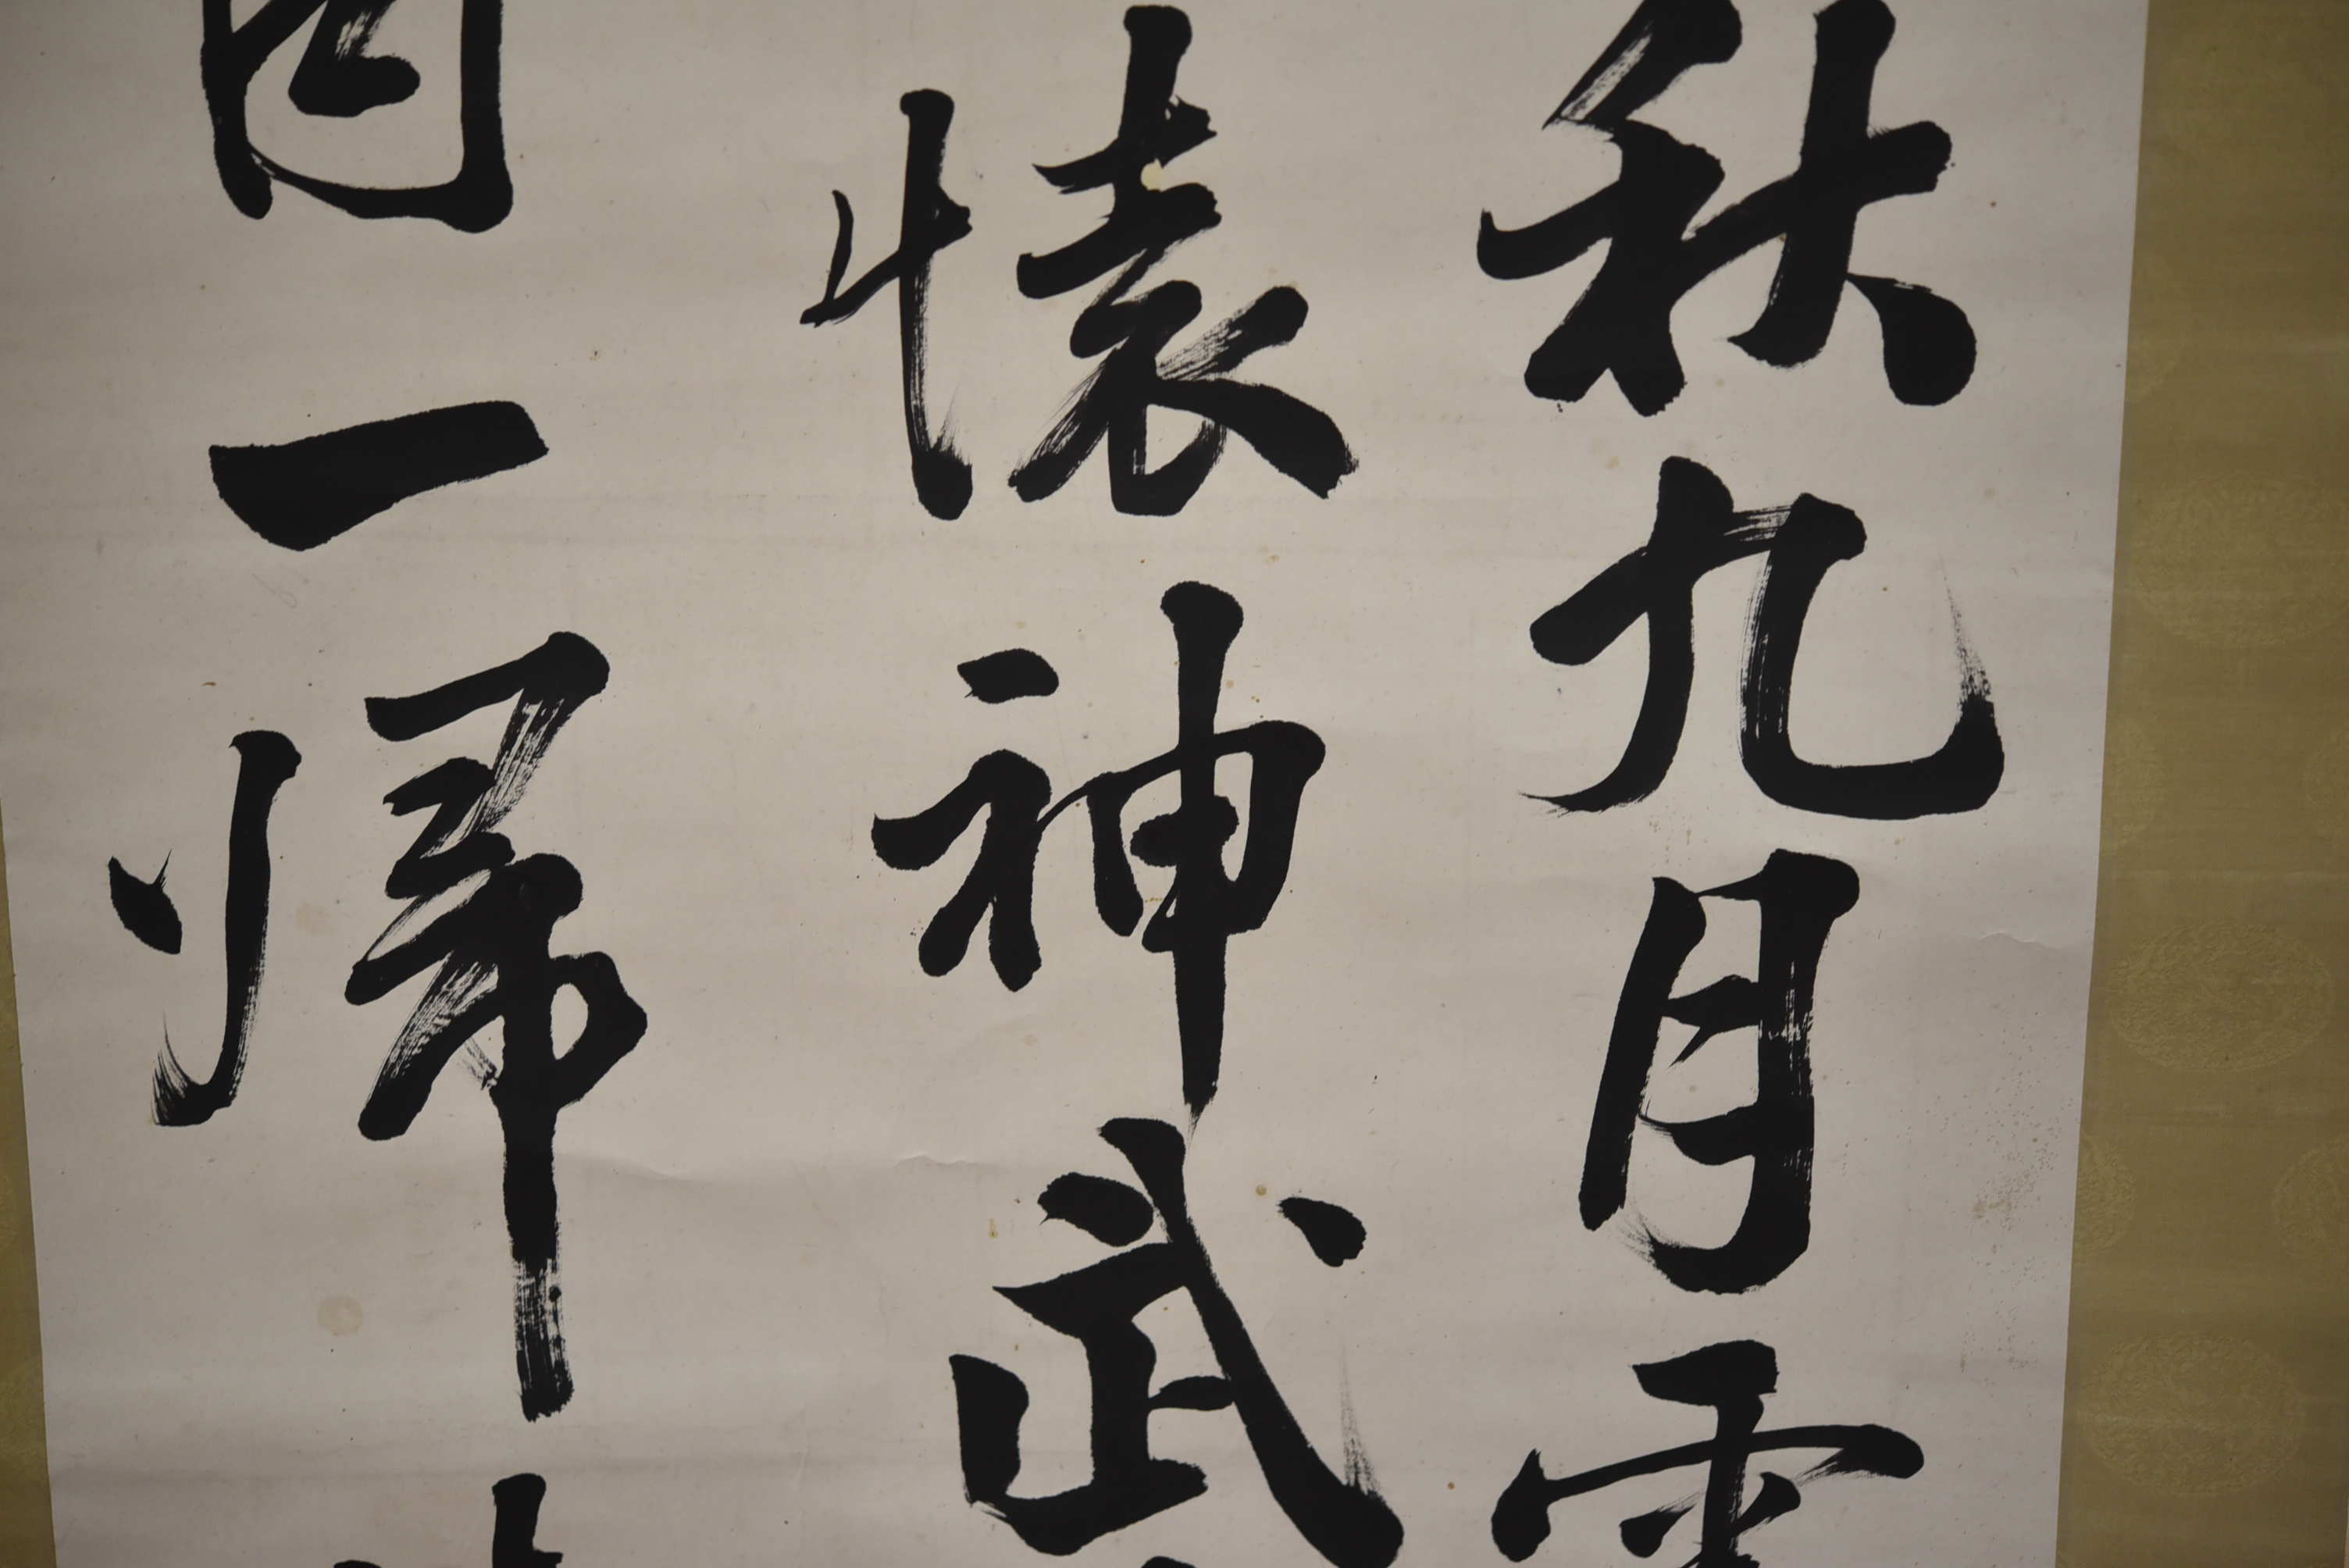 秋九月
懐神武
一帰